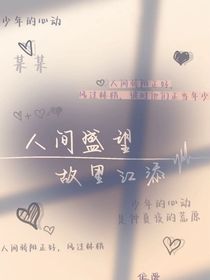 少年的心动
某某
人间骄阳正好
风过林梢，彼时他们正当年少
人间盛望
故里江添
少年的心动
是仲夏夜的荒原
人间骄阳正好，风过林梢